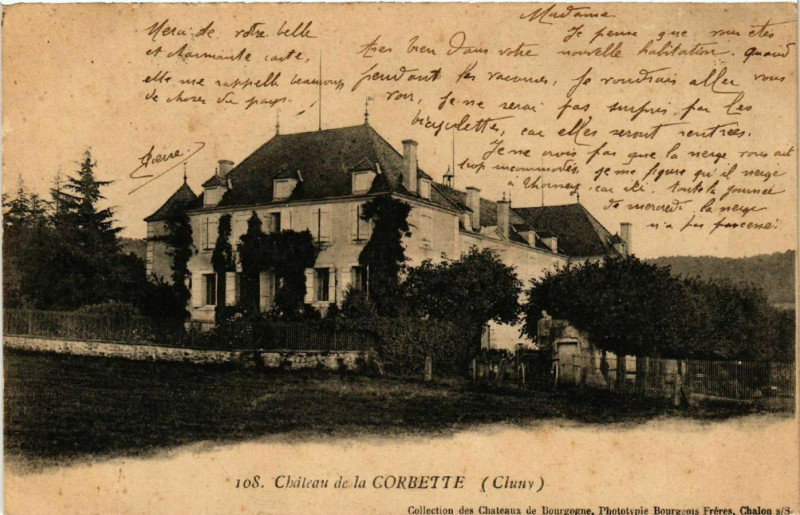 Madame
Je pense que vous êtes
très bien dans votre nouvelle habitation. quand
pendant les vacances, je voudrais aller vous
voir, je ne serai pas surpris par les
bicyclettes, car elles seront rentrées.
Je ne crois pas que la neige vous ait
trop incommodés, je me figure qu'il neige
à car ici toute la journée
de mercredi la neige
n'a pas cessé.
Merci de votre belle
et charmante carte,
elle me rappelle beaucoup
de choses du pays.
Pierre.
108. Château de la CORBETTE (Cluny)
Collection des Chateaux de Bourgogne. Phototypie Bourgeois Frères, Chalon s/S